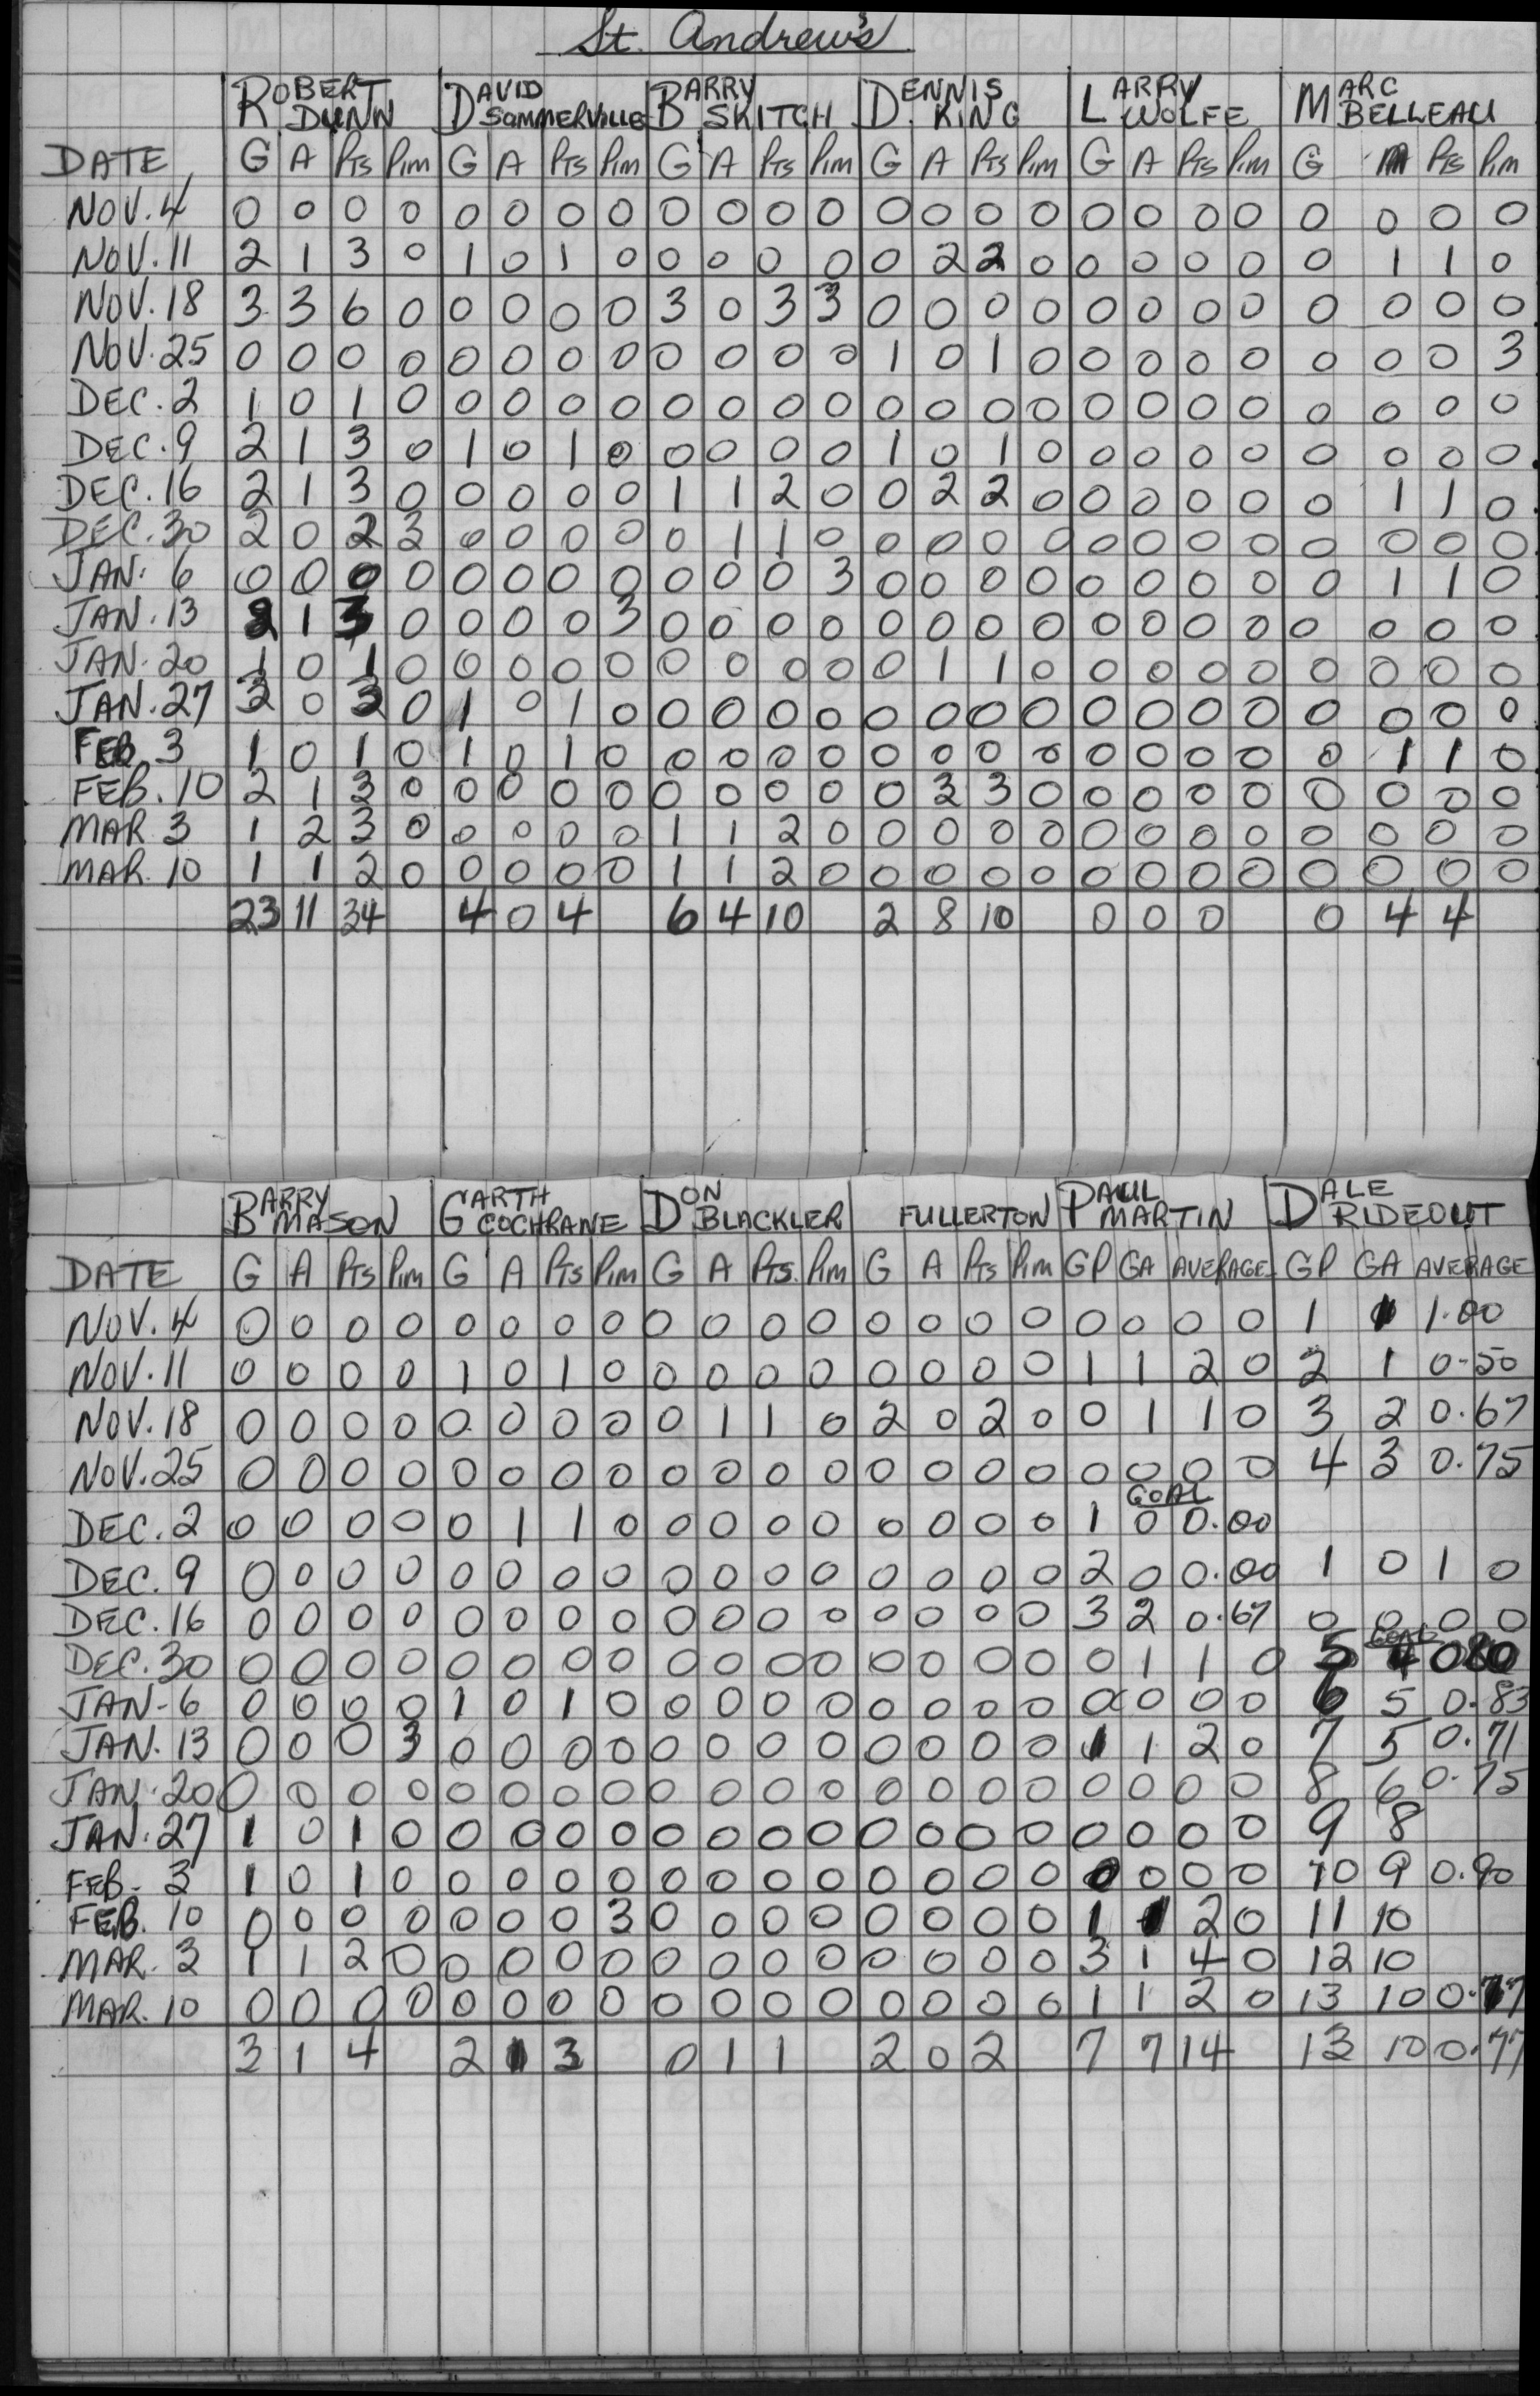 St. Andrew's
ROBERT DUNN DAVID SOMMERVILLE BARRY SKITCH DENNIS KING LARRY WOLFE MARC BELLEAU
DATE G A Pts Pim G A Pts Pim G A Pts Pim G A Pts Pim G A Pts Pim G A Pts Pim
NOV. 4 0 0 0 0 0 0 0 0 0 0 0 0 0 0 0 0 0 0 0 0 0 0 0 0
NOV. 11 2 1 3 0 1 0 1 0 0 0 0 0 0 2 2 0 0 0 0 0 0 1 1 0
NOV. 18 3 3 6 0 0 0 0 0 3 0 3 3 0 0 0 0 0 0 0 0 0 0 0 0
NOV. 25 0 0 0 0 0 0 0 0 0 0 0 0 1 0 1 0 0 0 0 0 0 0 0 3
DEC. 2 1 0 1 0 0 0 0 0 0 0 0 0 0 0 0 0 0 0 0 0 0 0 0 0
DEC. 9 2 1 3 0 1 0 1 0 0 0 0 0 1 0 1 0 0 0 0 0 0 0 0 0
DEC. 16 2 1 3 0 0 0 0 0 1 1 2 0 0 2 2 0 0 0 0 0 0 1 1 0
DEC. 30 2 0 2 3 0 0 0 0 0 1 1 0 0 0 0 0 0 0 0 0 0 0 0 0
JAN. 6 0 0 0 0 0 0 0 0 0 0 0 3 0 0 0 0 0 0 0 0 0 1 1 0
JAN. 13 2 1 3 0 0 0 0 3 0 0 0 0 0 0 0 0 0 0 0 0 0 0 0 0
JAN. 20 1 0 1 0 0 0 0 0 0 0 0 0 0 1 1 0 0 0 0 0 0 0 0 0
JAN. 27 3 0 3 0 1 0 1 0 0 0 0 0 0 0 0 0 0 0 0 0 0 0 0 0
FEB. 3 1 0 1 0 1 0 1 0 0 0 0 0 0 0 0 0 0 0 0 0 0 1 1 0
FEB. 10 2 1 3 0 0 0 0 0 0 0 0 0 0 3 3 0 0 0 0 0 0 0 0 0
MAR. 3 1 2 3 0 0 0 0 0 1 1 2 0 0 0 0 0 0 0 0 0 0 0 0 0
MAR. 10 1 1 2 0 0 0 0 0 1 1 2 0 0 0 0 0 0 0 0 0 0 0 0 0
23 11 34 4 0 4 6 4 10 2 8 10 0 0 0 0 4 4
BARRY MASON GARTH COCHRANE DON BLACKLER FULLERTON PAUL MARTIN DALE RIDEOUT
DATE G A Pts Pim G A Pts Pim G A Pts. Pim G A Pts Pim GP GA AVERAGE GP GA AVERAGE
NOV. 4 0 0 0 0 0 0 0 0 0 0 0 0 0 0 0 0 0 0 0 0 1 1 1.00
NOV. 11 0 0 0 0 1 0 1 0 0 0 0 0 0 0 0 0 1 1 2 0 2 1 0.50
NOV. 18 0 0 0 0 0 0 0 0 0 1 1 0 2 0 2 0 0 1 1 0 3 2 0.67
NOV. 25 0 0 0 0 0 0 0 0 0 0 0 0 0 0 0 0 0 0 0 0 4 3 0.75
GOAL
DEC. 2 0 0 0 0 0 1 1 0 0 0 0 0 0 0 0 0 1 0 0.00
DEC. 9 0 0 0 0 0 0 0 0 0 0 0 0 0 0 0 0 2 0 0.00 1 0 1 0
DEC. 16 0 0 0 0 0 0 0 0 0 0 0 0 0 0 0 0 3 2 0.67 0 0 0 0
GOAL
DEC. 30 0 0 0 0 0 0 0 0 0 0 0 0 0 0 0 0 0 1 1 0 5 4 0.80
JAN. 6 0 0 0 0 1 0 1 0 0 0 0 0 0 0 0 0 0 0 0 0 6 5 0.83
JAN. 13 0 0 0 3 0 0 0 0 0 0 0 0 0 0 0 0 1 1 2 0 7 5 0.71
JAN. 20 0 0 0 0 0 0 0 0 0 0 0 0 0 0 0 0 0 0 0 0 8 6 0.75
JAN. 27 1 0 1 0 0 0 0 0 0 0 0 0 0 0 0 0 0 0 0 0 9 8
FEB. 3 1 0 1 0 0 0 0 0 0 0 0 0 0 0 0 0 0 0 0 0 10 9 0.90
FEB. 10 0 0 0 0 0 0 0 3 0 0 0 0 0 0 0 0 1 1 2 0 11 10
MAR. 3 1 1 2 0 0 0 0 0 0 0 0 0 0 0 0 0 3 1 4 0 12 10
MAR. 10 0 0 0 0 0 0 0 0 0 0 0 0 0 0 0 0 1 1 2 0 13 10 0.77
3 1 4 2 1 3 0 1 1 2 0 2 7 7 14 13 10 0.77